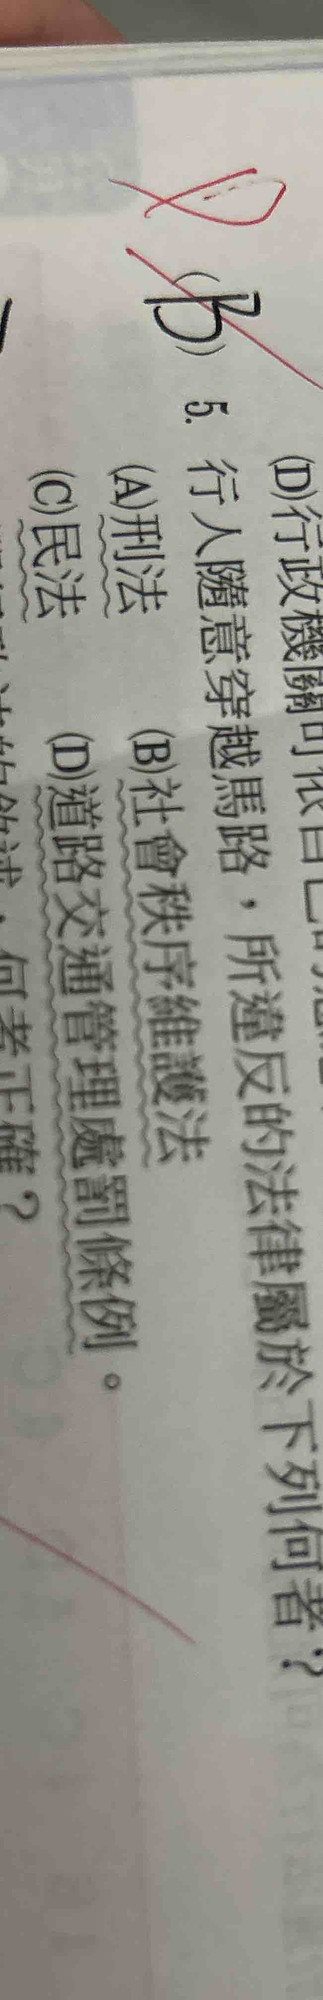 (D)行政機關可依自己的
(B) 5. 行人隨意穿越馬路，所違反的法律屬於下列何者？
(A)刑法 (B)社會秩序維護法
(C)民法 (D)道路交通管理處罰條例。
何者正確？